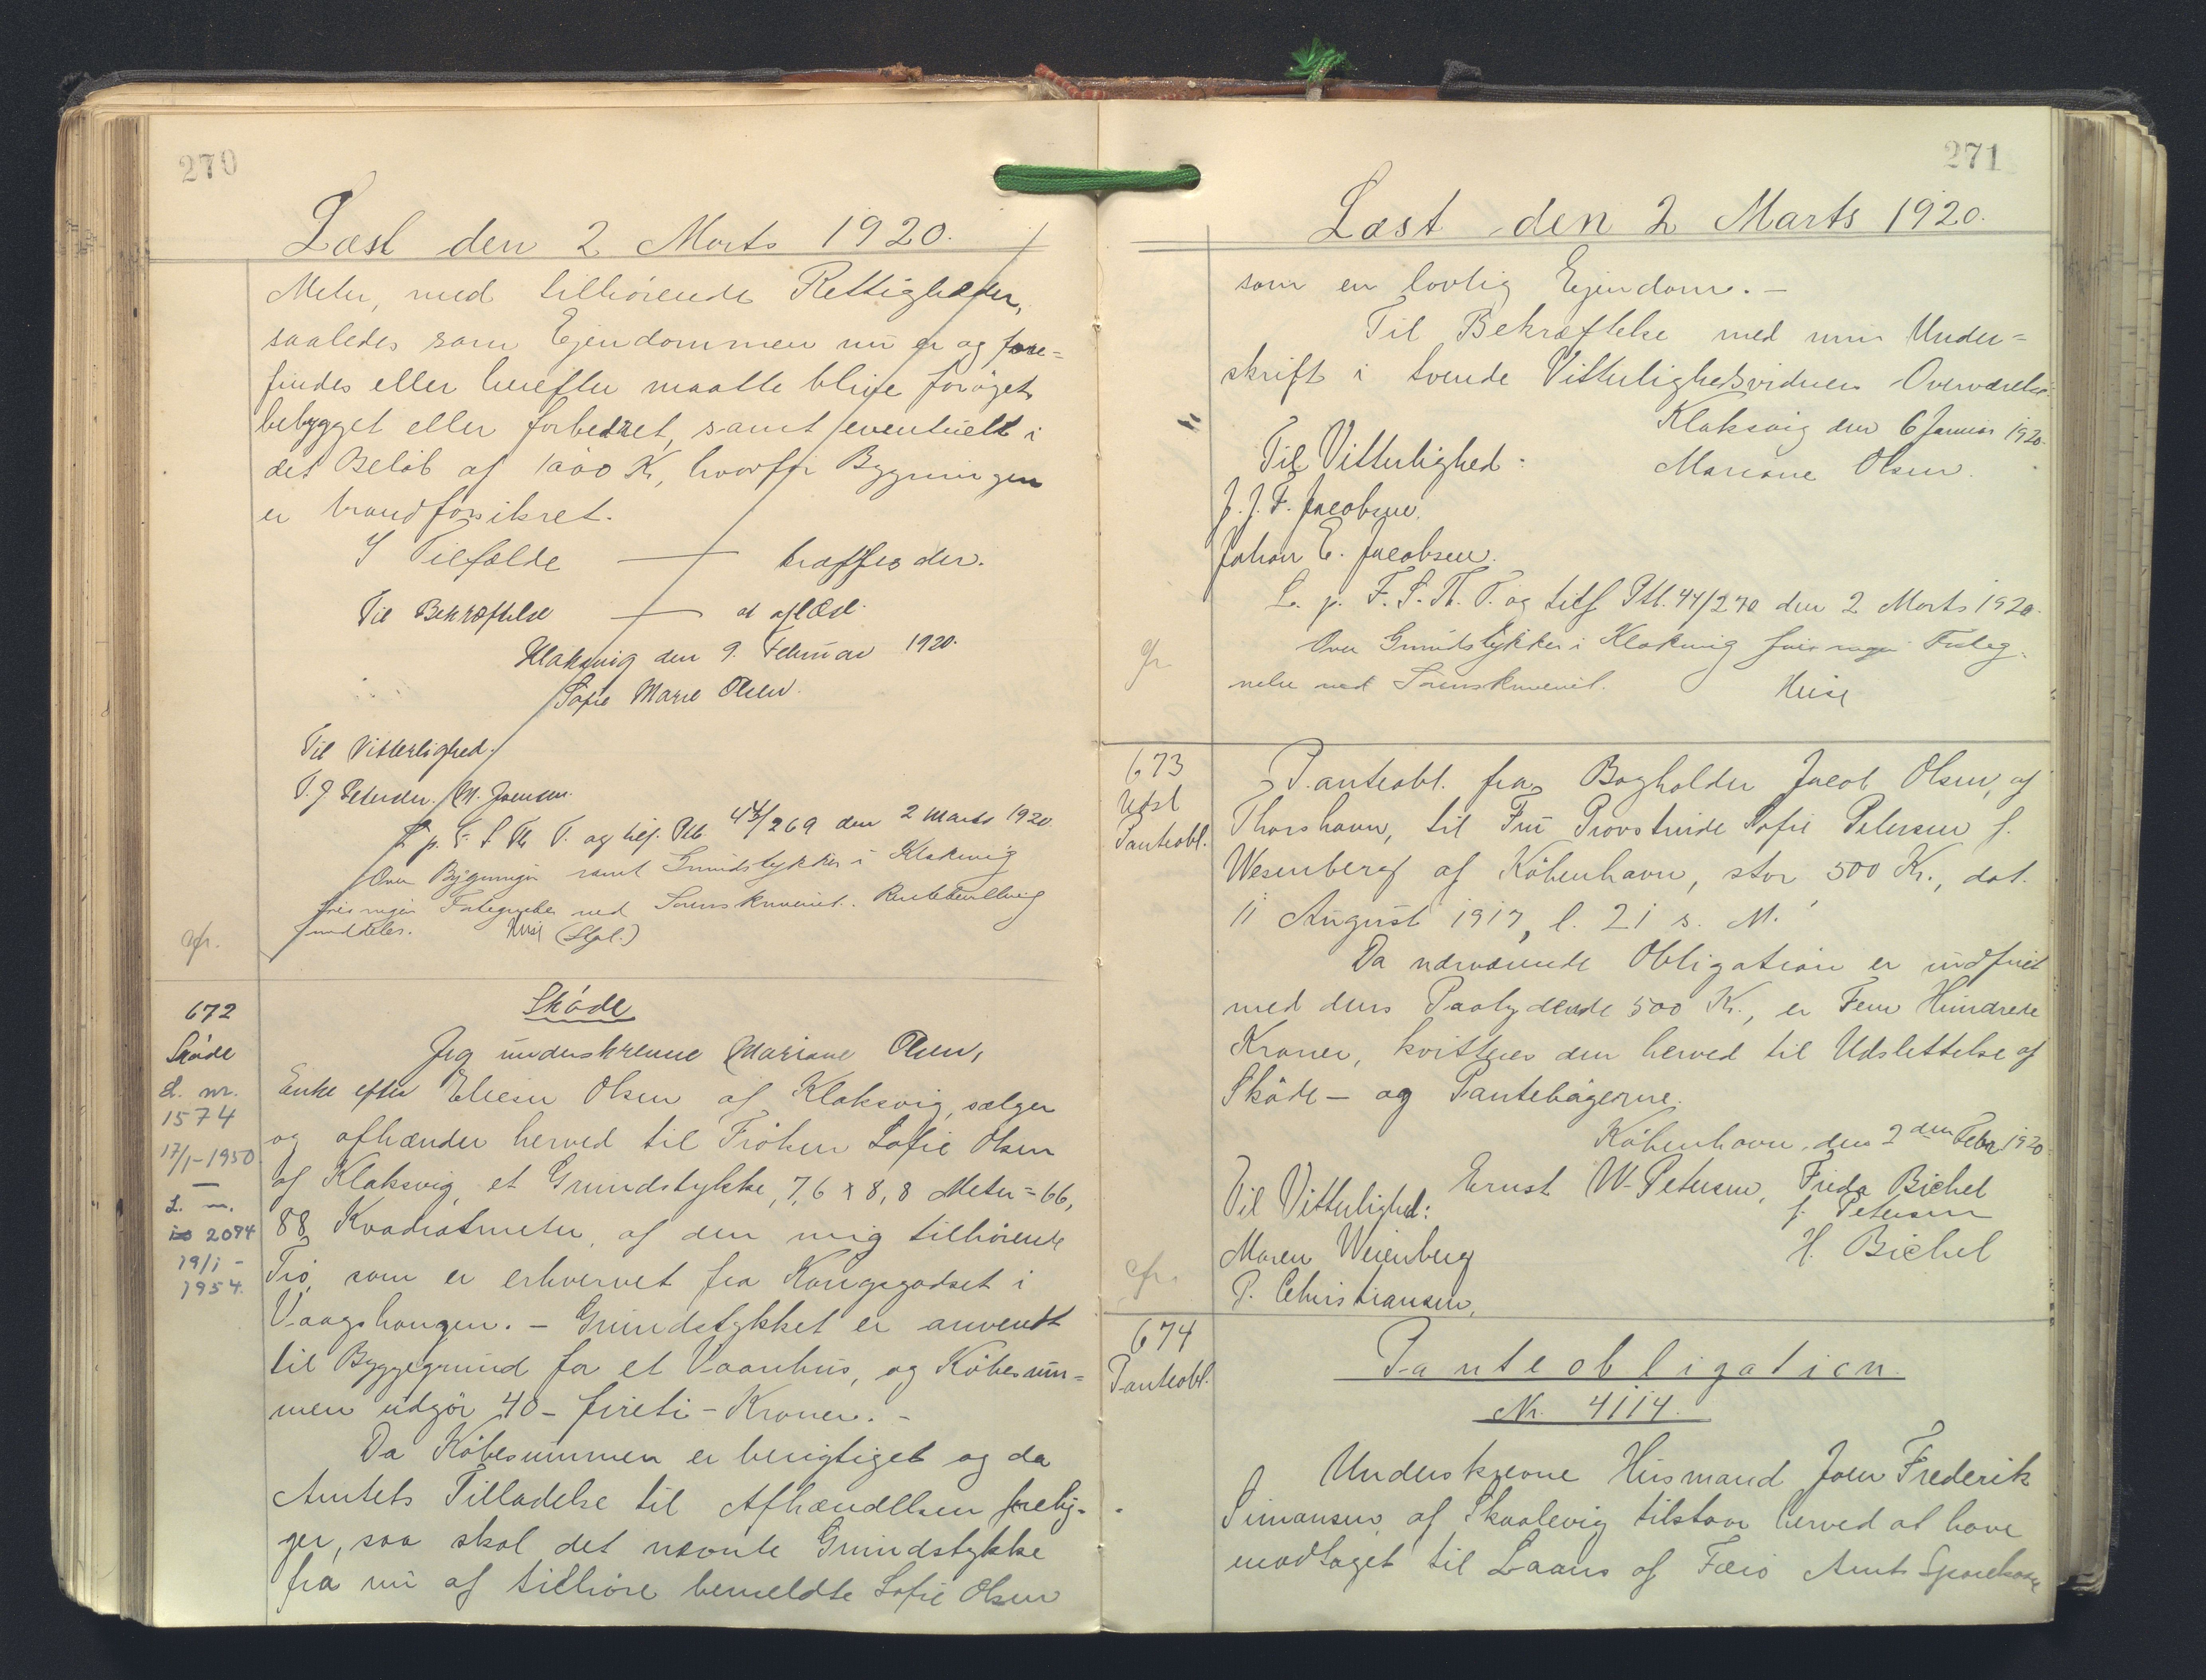 270
Læst den 2 Marts 1920.
Meter, med tilhörende Rettigheder,
saaledes som Ejendommen nu er og fore=
findes eller herefter maatte blive foröget,
bebygget eller forbedret, samt eventuelt i
det Belöb af 1000 Kr, hvorfor Bygningen
er brandforsikret.
I Tilfælde — træffes der.
Til Bekræftelse — at aflæse.
Klaksvig den 9. Februar 1920.
Sofie Marie Olsen.
Til Vitterlighed.
P. J. Petersen. M. Joensen.
L. p. F. S. Th. T. og tilf. Ptb. 44/269 den 2 Marts 1920
Over Bygningen samt Grundstykker i Klaksvig
foreligger
meddeles. (Stpl.)
cfr.
672
Sköde
L. nr.
1574
17/1-1950
L. nr.
2094
19/1-
1954.
Sköde
Jeg underskrevne Mariane Olsen,
Enke efter Elieser Olsen af Klaksvig, sælger
og afhænder herved til Fröken Sofie Olsen
af Klaksvig, et Grundstykke, 7,6 x 8,8 Meter = 66,
88 Kvadratmeter, af den mig tilhörende
Trö, som er erhvervet fra Kongsgodset i
Vaagshaugen. - Grundstykket er anvendt
til Byggegrund for et Vaanhus, og Köbesum=
men udgör 40 - fireti - Kroner. -
Da Köbesummen er berigtiget og da
Amtets Tilladelse til Afhændelsen forelig-
ger, saa skal det nævnte Grundstykke
fra nu af tilhöre bemeldte Sofie Olsen
271
Læst den 2 Marts 1920.
som en lovlig Ejendom. -
Til Bekræftelse med min Under=
skrift i tvende Vitterlighedsvidners Overværelse.
Klaksvig den 6 Januar 1920.
Til Vitterlighed: Mariane Olsen.
J. J. F. Jacobsen.
Johan E. Jacobsen.
L. p. F. S. Th. T. og tilf Ptb. 44/270 den 2 Marts 1920.
Over Grundstykker i Klaksvig
673
Udsl
Panteobl.
Panteobl. fra Bogholder Jacob Olsen, af
Thorshavn, til Fru Provstinde Sofie Petersen f.
Wesenberg af Köbenhavn, stor 500 Kr., dat.
11 August 1917, l. 21 s. M.
Da nærværende Obligation er indfriet
med dens Paalydende 500 Kr., er Fem Hundrede
Kroner, kvitteres den herved til Udslettelse af
Sköde - og Pantebögerne.
Köbenhavn, den 2den Febr. 1920
Ernst W. Petersen, Frida Bichel
f. Petersen
Til Vitterlighed: H. Bichel
Maren Weienberg
P. Christiansen.
cfr.
674
Panteobl.
Panteobligation.
Nr. 4114.
Underskrevne Husmand Joen Frederik
Simonsen af Skaalevig tilstaar herved at have
modtaget til Laans af Færö Amts Sparekasse